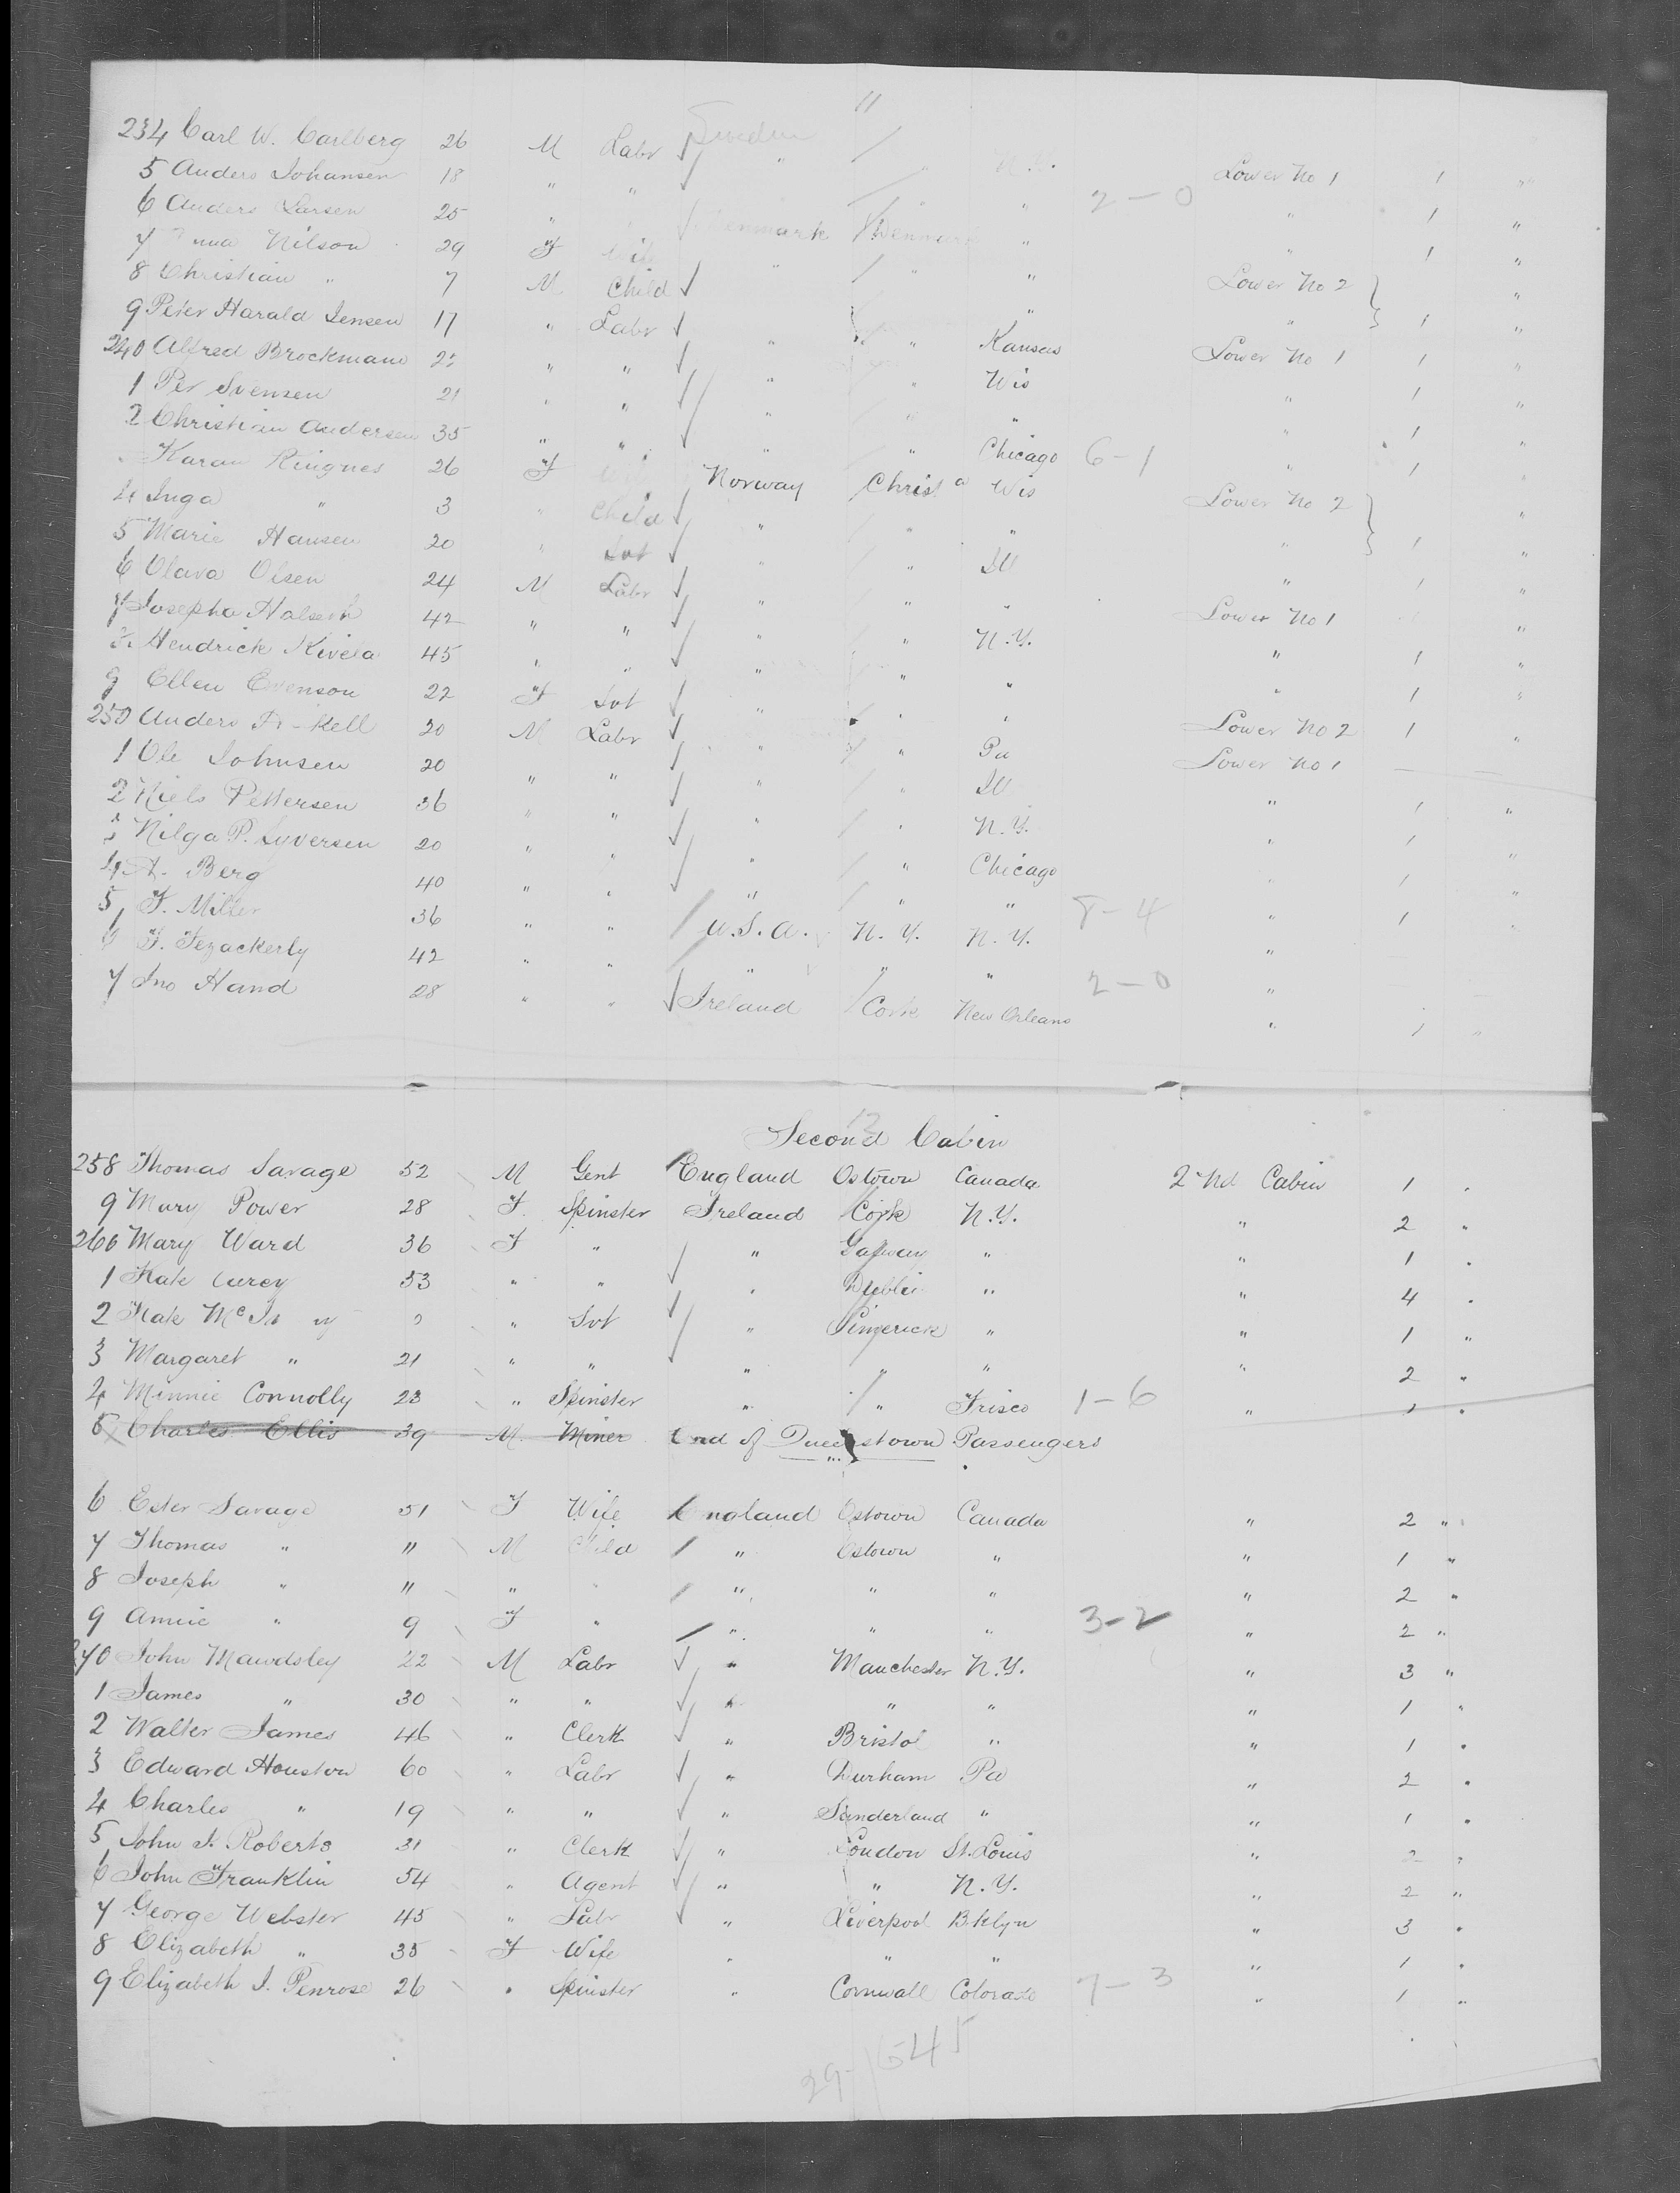 11
234 Carl W. Carlberg 26 M Labr Sweden
5 Anders Johansen 18 " " " " N.Y. Lower No 1 1 "
6 Anders Larsen 25 " Denmark Denmark " 2-0 " 1 "
7 Nilson 29 F Wife " 1 "
8 Christian " 7 M Child " " " Lower No 2 "
9 Peter Harald Jensen 17 " Labr " " 1 "
240 Alfred Brockmann " " " " Kansas Lower No 1 1 "
1 Per Svensen 21 " " " " Wis " 1 "
2 Christian Andersen 35 " " " " Chicago 6-1 " 1 "
Karan Ringnes 26 F Norway Christ a Wis " 1
4 Inga " 3 " Child " " " Lower No 2 "
5 Marie Hansen 20 " Svt " " Ill " 1 "
6 Olava Olsen 24 M Labr " " " " 1 "
7 Josepha 42 " " " " N.Y. Lower No 1 "
Hendrick Kivela 45 " " " " " " 1 "
9 Ellen Evenson 22 F Svt " " " " 1
250 Anders 20 M Labr " " Pa Lower No 2 1 "
1 Ole Johnsen 20 " " " " Ill Lower No 1
2 Niels Pettersen 36 " " " " N.Y. " 1 "
3 Nilga P. Syversen 20 " " " " Chicago " 1 "
4 A. Berg 40 " " " " " " 1 "
5 F. Miller 36 " " U.S.A. N.Y. N.Y. 8-4 " 1
6 F. Fezackerly 42 " " " " " "
7 Jno Hand 28 " " Ireland Cork New Orleans 2-0 " 1 "
12
Second Cabin
258 Thomas Savage 52 M Gent England Ostown Canada 2nd Cabin 1 "
9 Mary Power 28 F. Spinster Ireland Cork N.Y. " 2 "
260 Mary Ward 36 F " " Galway " " 1 "
1 Kate 53 " " " Dublin " " 4 "
2 Kate " Svt " Limerick " " 1 "
3 Margaret " 21 " " " " " " 2 "
4 Minnie Connolly 23 " Spinster " " Frisco 1-6 " 1 "
5 Charles Ellis 39 M. Miner End of Queenstown Passengers
6 Ester Savage 51 F Wife England Ostown Canada " 2 "
7 Thomas " 11 M Child " Ostown " " 1 "
8 Joseph " 11 " " " " " " 2 "
9 Annie " 9 F " " " " 3-2 " 2 "
270 John Mawdsley 22 M Labr " Manchester N.Y. " 3 "
1 James " 30 " " " " " " 1 "
2 Walter James 46 " Clerk " Bristol " " 1 "
3 Edward Houston 60 " Labr " Durham Pa " 2 "
4 Charles " 19 " " " Sunderland " " 1 "
5 John J. Roberts 31 " Clerk " London St. Louis " 2 "
6 John Franklin 54 " Agent " " N.Y. " 2 "
7 George Webster 45 " Labr " Liverpool Bklyn " 3 "
8 Elizabeth " 35 F Wife " " " " 1 "
9 Elizabeth J. Penrose 26 " Spinster " Cornwall Colorado 7-3 " 1 "